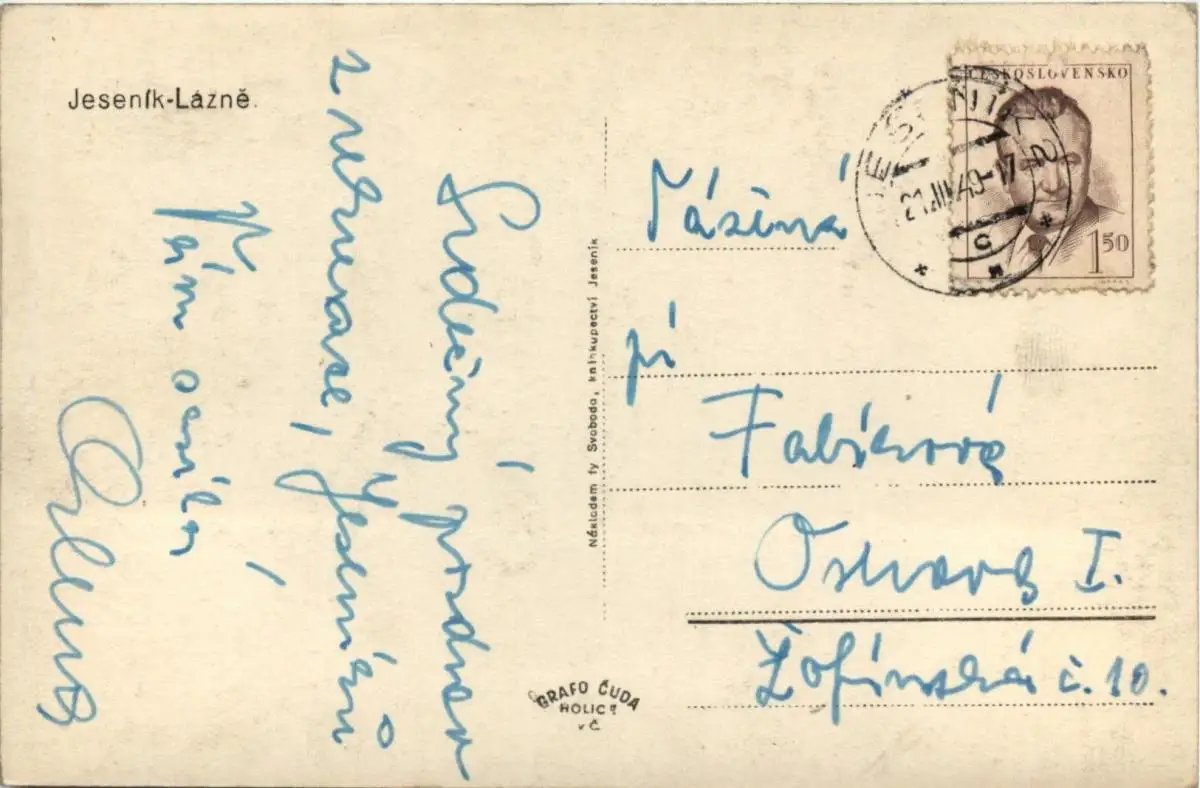 Jeseník-Lázně.
Srdečný pozdrav
z rekreace, Jeseníků
Vám
Nákladem fy Svoboda, knihkupectví Jeseník
GRAFO ČUDA
HOLICE
v Č
ČESKOSLOVENSKO
150
JESENÍK 2
21.III.49-17
C
Vážená
pí
Fabíková
Ostrava I.
Žofínská č. 10.